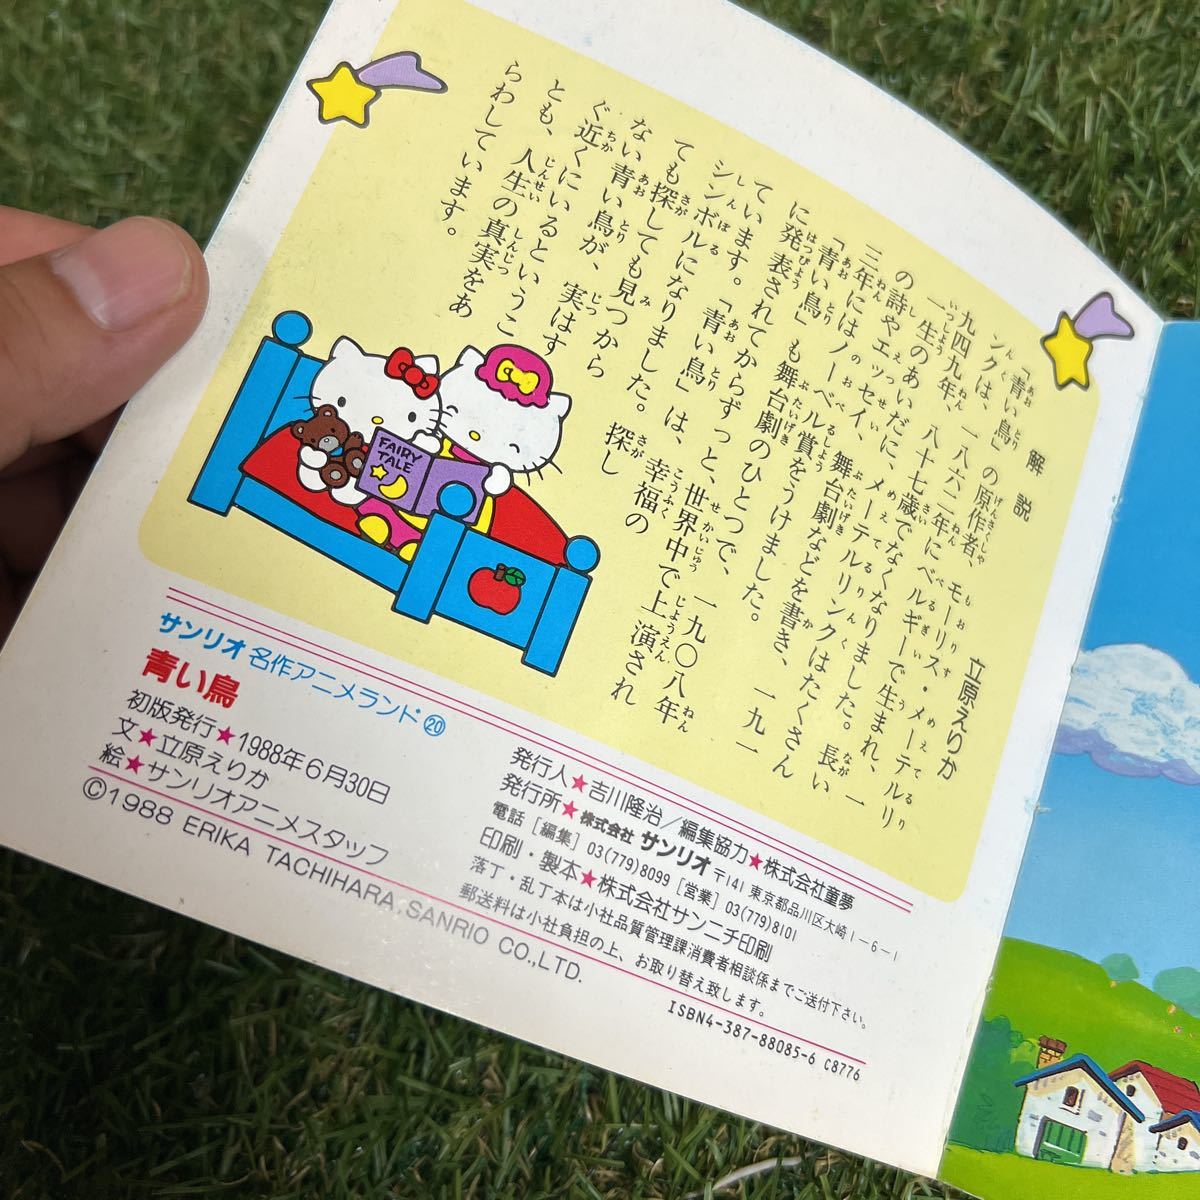 解説
立原えりか
「青い鳥」の原作者、モーリス・メーテルリ
ンクは、一八六二年にベルギーで生まれ、
一九四九年、八十七歳でなくなりました。長い一
生のあいだに、メーテルリンクはたくさん
の詩やエッセイ、舞台劇などを書き、一九一
三年にはノーベル賞をうけました。
「青い鳥」も舞台劇のひとつで、一九〇八年
に発表されてからずっと、世界中で上演され
ています。「青い鳥」は、幸福の
シンボルになりました。探し
ても探しても見つから
ない青い鳥が、実はす
ぐ近くにいるというこ
とも、人生の真実をあ
らわしています。
FAIRY
TALE
サンリオ 名作アニメランド⑳
青い鳥
初版発行★1988年6月30日
文★立原えりか
絵★サンリオアニメスタッフ
©1988 ERIKA TACHIHARA, SANRIO CO.,LTD.
発行人★吉川隆治/編集協力★株式会社童夢
発行所★株式会社 サンリオ 〒141 東京都品川区大崎1-6-1
電話[編集]03(779)8099[営業]03(779)8101
印刷・製本★株式会社サンニチ印刷
落丁・乱丁本は小社品質管理課消費者相談係までご送付下さい。
郵送料は小社負担の上、お取り替え致します。
ISBN4-387-88085-6 C8776